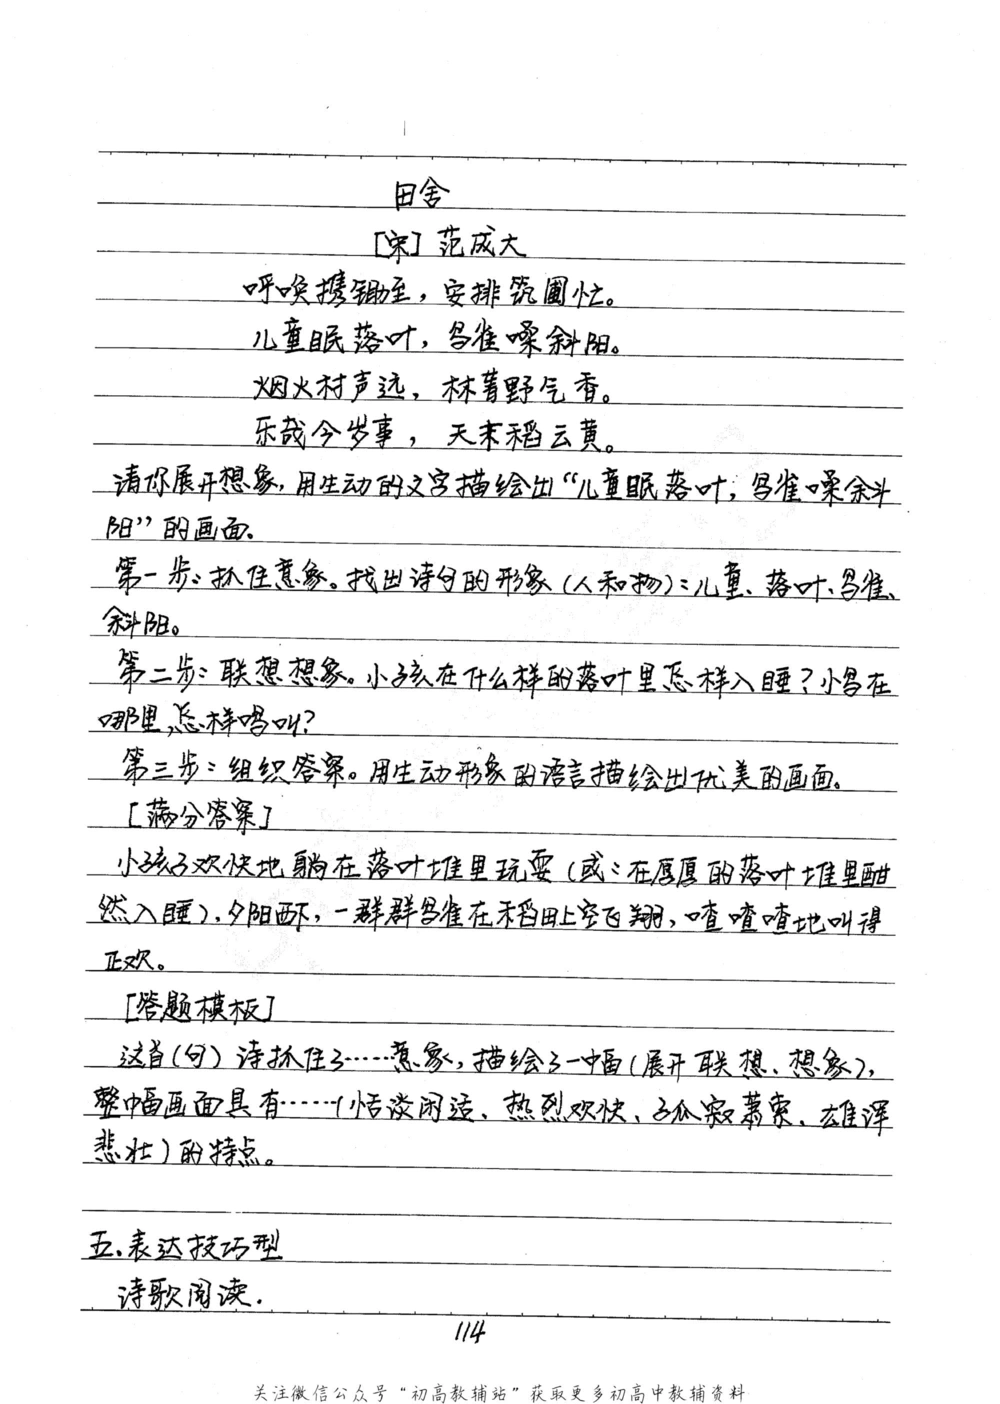 田舍
[宋] 范成大
呼唤携锄至，安排筑圃忙。
儿童眠落叶，鸟雀噪斜阳。
烟火村声远，林菁野气香。
乐哉今岁事，天末稻云黄。
请你展开想象，用生动的文字描绘出“儿童眠落叶，鸟雀噪斜
阳”的画面。
第一步：抓住意象。找出诗句的形象（人和物）：儿童、落叶、鸟雀、
斜阳。
第二步：联想想象。小孩在什么样的落叶里怎样入睡？小鸟在
哪里，怎样鸣叫？
第三步：组织答案。用生动形象的语言描绘出优美的画面。
[满分答案]
小孩子欢快地躺在落叶堆里玩耍（或：在厚厚的落叶堆里酣
然入睡），夕阳西下，一群群鸟雀在稻田上空飞翔，喳喳喳地叫得
正欢。
[答题模板]
这首（句）诗抓住了……意象，描绘了一幅（展开联想、想象），
整幅画面具有……（恬淡闲适、热烈欢快、孤寂萧索、雄浑
悲壮）的特点。
五、表达技巧型
诗歌阅读.
114
关注微信公众号“初高教辅站”获取更多初高中教辅资料